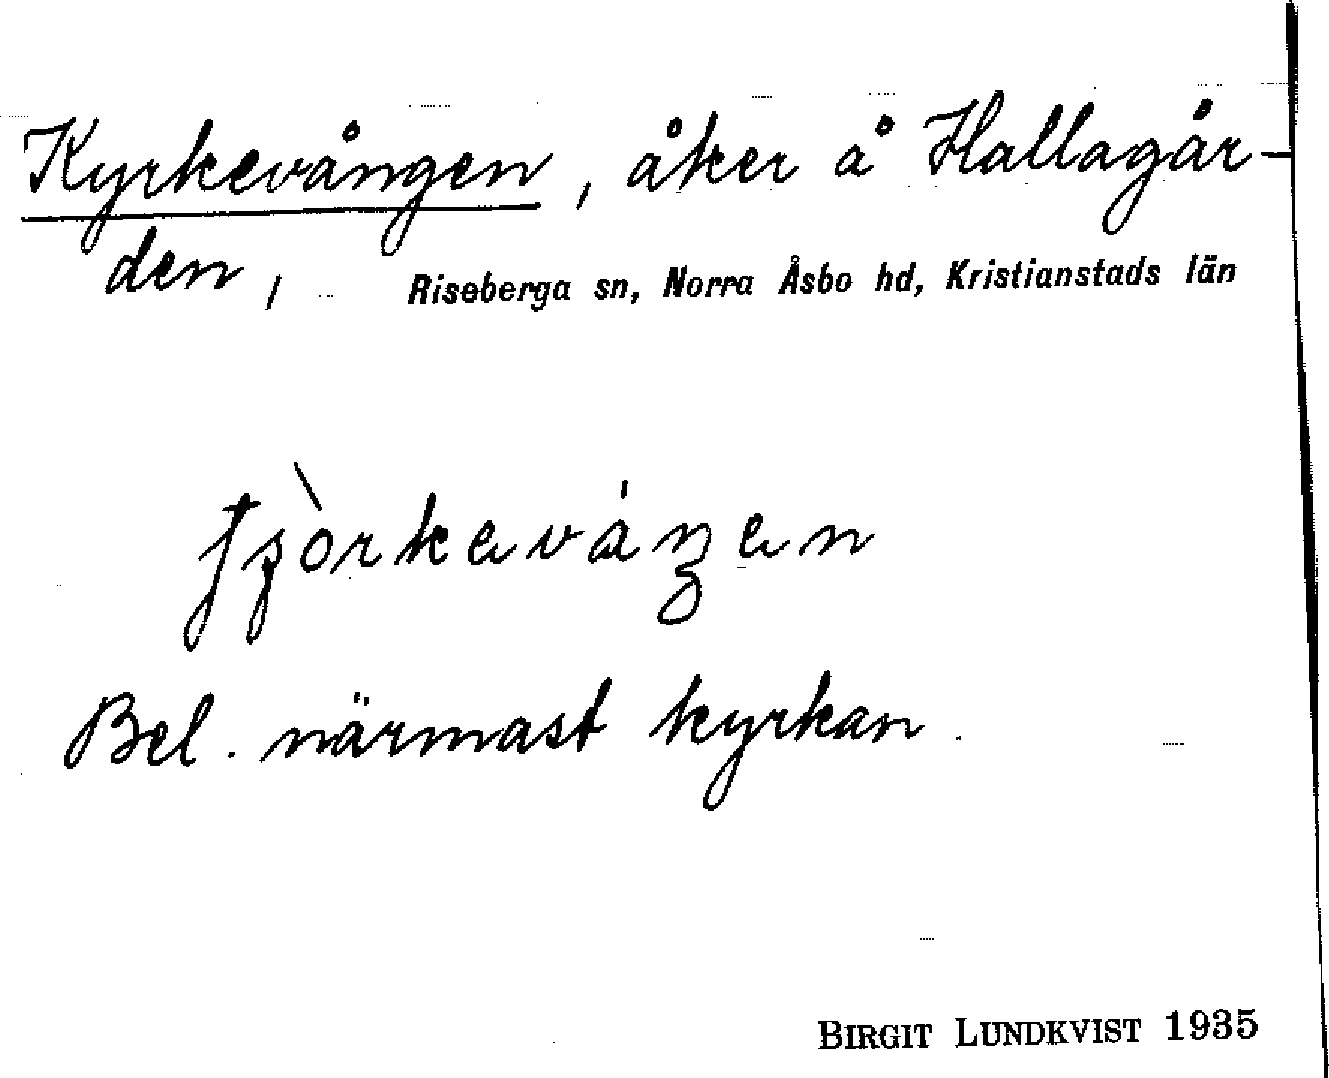 Kyrkevången, åker å Hallagår-
den, Riseberga sn, Norra Åsbo hd, Kristianstads län
Bel. närmast kyrkan.
BIRGIT LUNDKVIST 1935